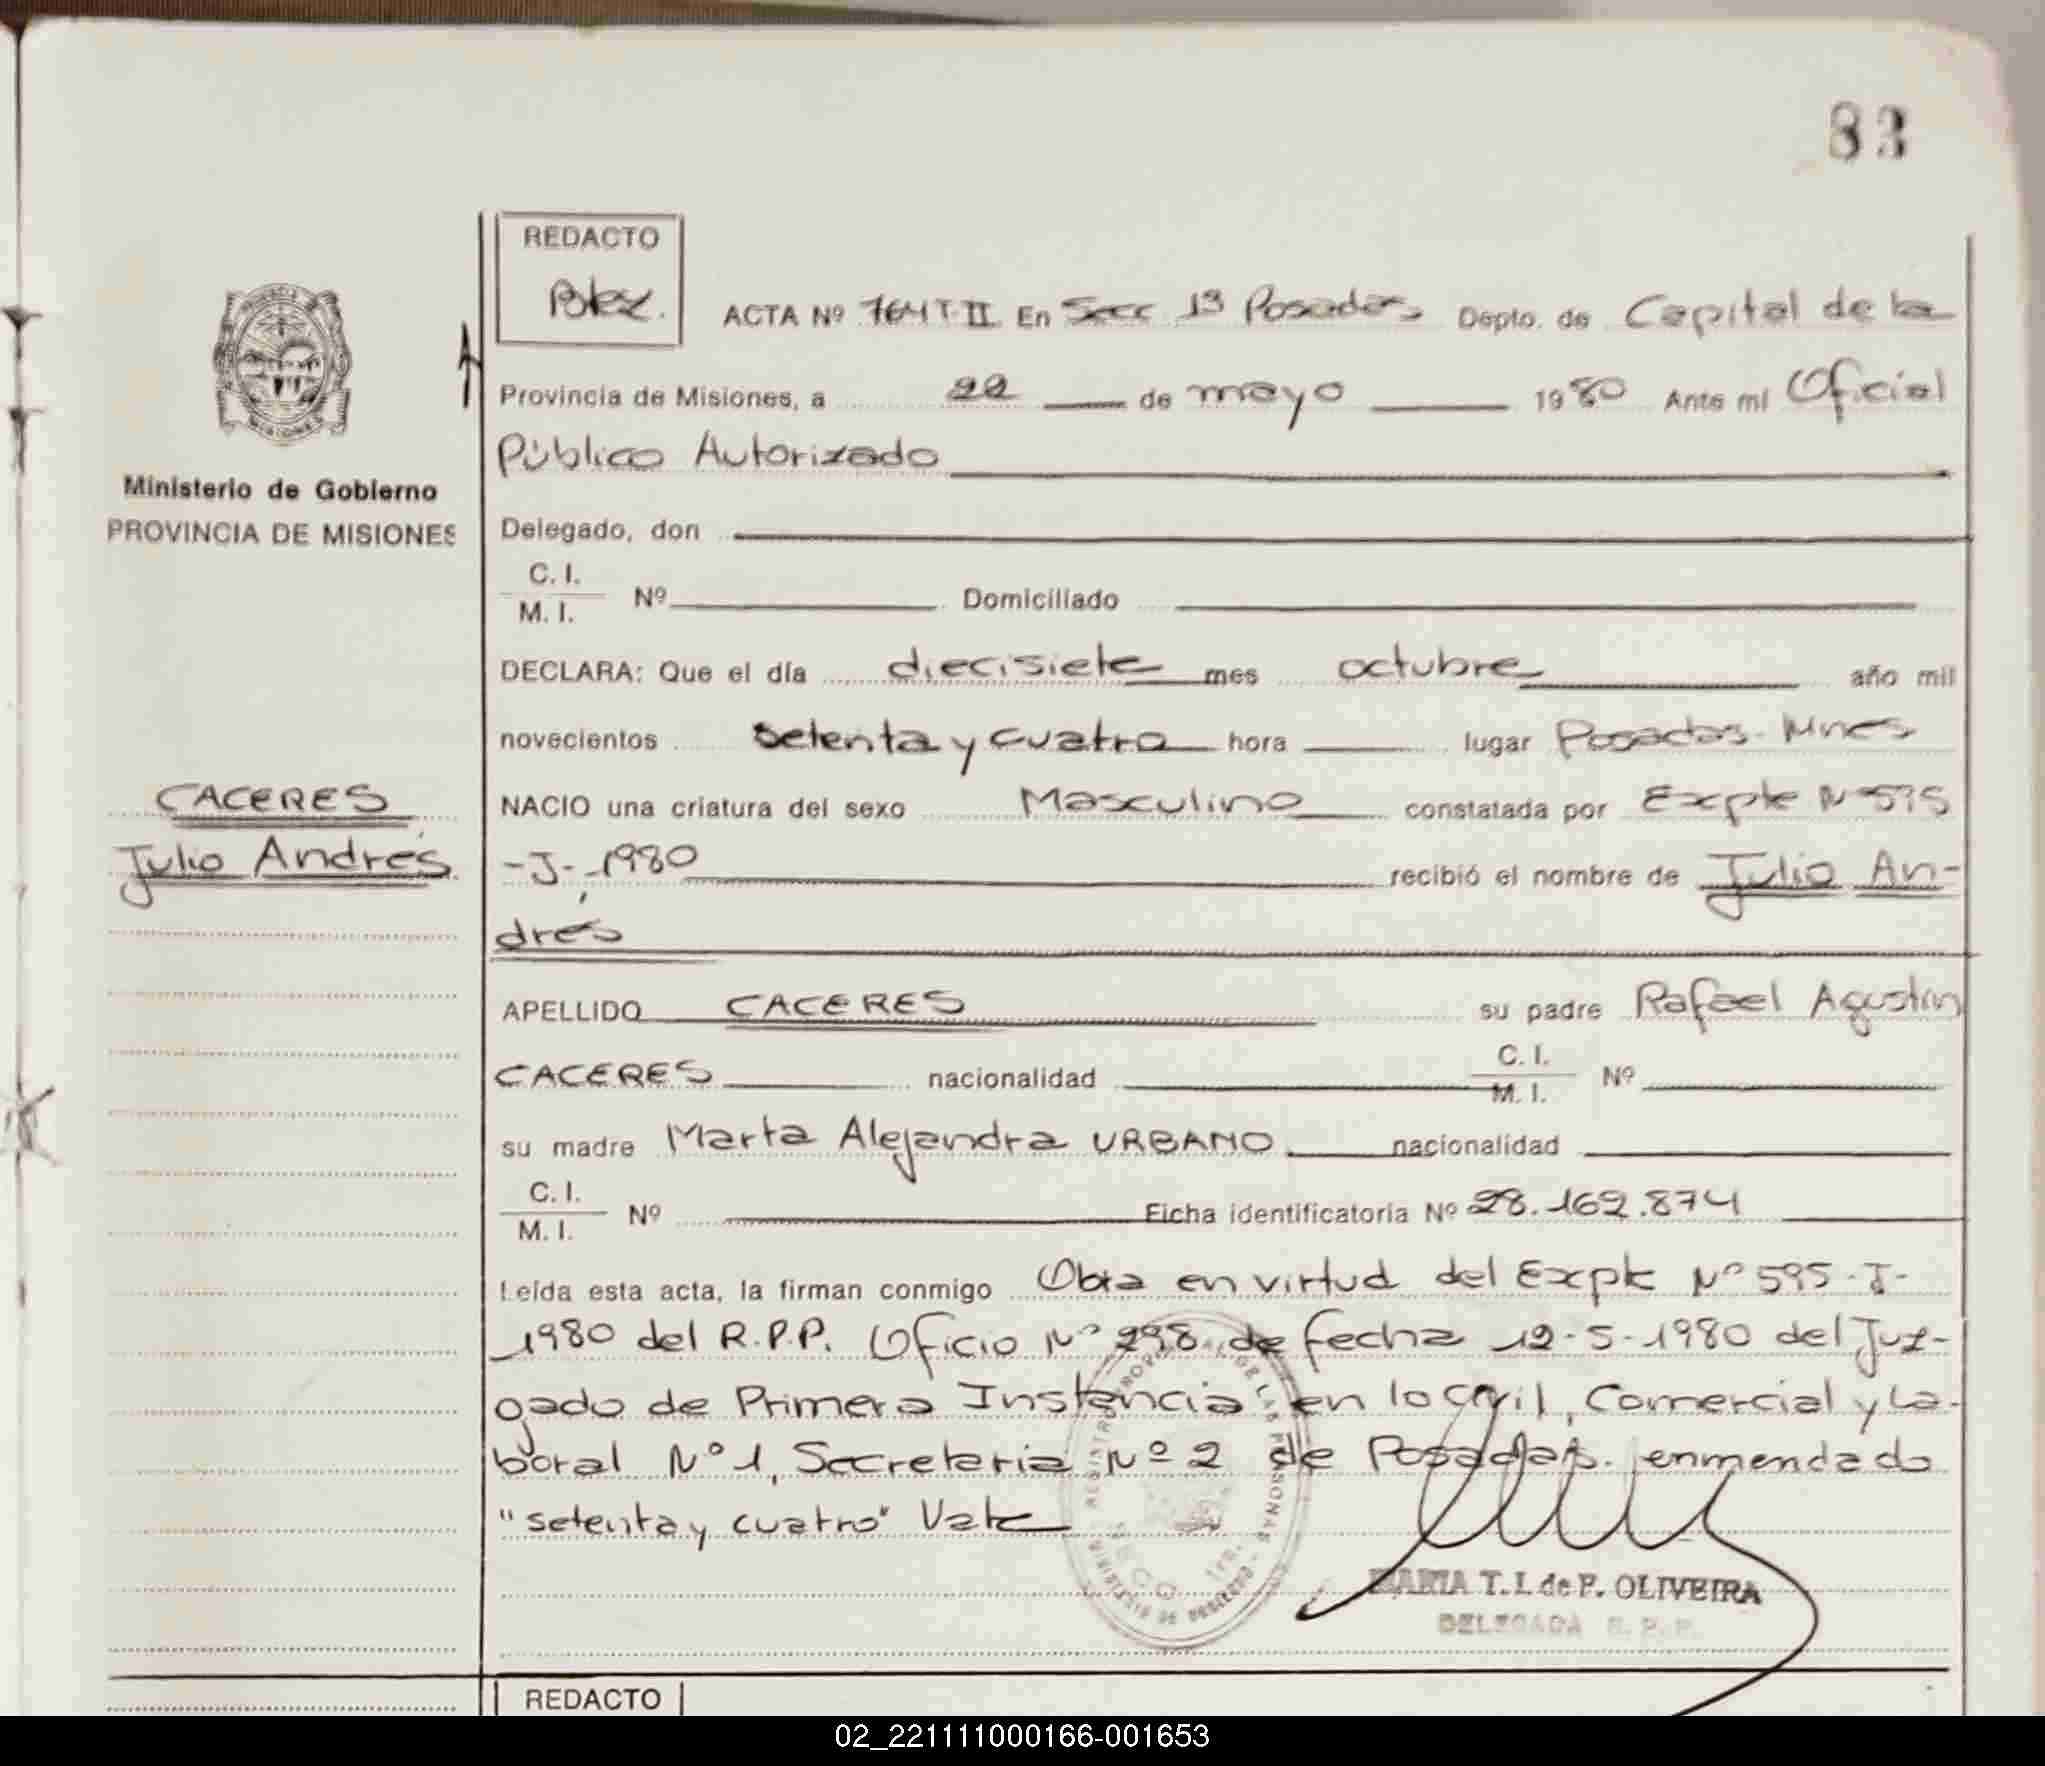 83
REDACTO
ACTA Nº 764 T. II En Secc 13 Posadas Depto. de Capital de la
Provincia de Misiones, a 22 de mayo 1980 Ante mí Oficial
Público Autorizado
Ministerio de Gobierno
PROVINCIA DE MISIONES
Delegado, don
C. I.
M. I. Nº Domiciliado
DECLARA: Que el día diecisiete mes octubre año mil
novecientos setenta y cuatro hora lugar Posadas. Mnes
CACERES
Julio Andrés
NACIO una criatura del sexo Masculino constatada por Expte Nº 595
-J-1980 recibió el nombre de Julio An-
drés
APELLIDO CACERES su padre Rafael Agustin
CACERES nacionalidad C. I.
M. I. Nº
su madre Marta Alejandra URBANO nacionalidad
C. I.
M. I. Nº Ficha identificatoria Nº 28.162.874
Leída esta acta, la firman conmigo Obra en virtud del Expte Nº 595-J-
1980 del R.P.P. Oficio Nº 298 de fecha 12-5-1980 del Juz-
gado de Primera Instancia en lo Civil, Comercial y La-
boral Nº 1, Secretaria Nº 2 de Posadas. enmendado
"setenta y cuatro" Vale
MARIA T. I. de F. OLIVEIRA
DELEGADA R. P. P.
REDACTO
02_221111000166-001653